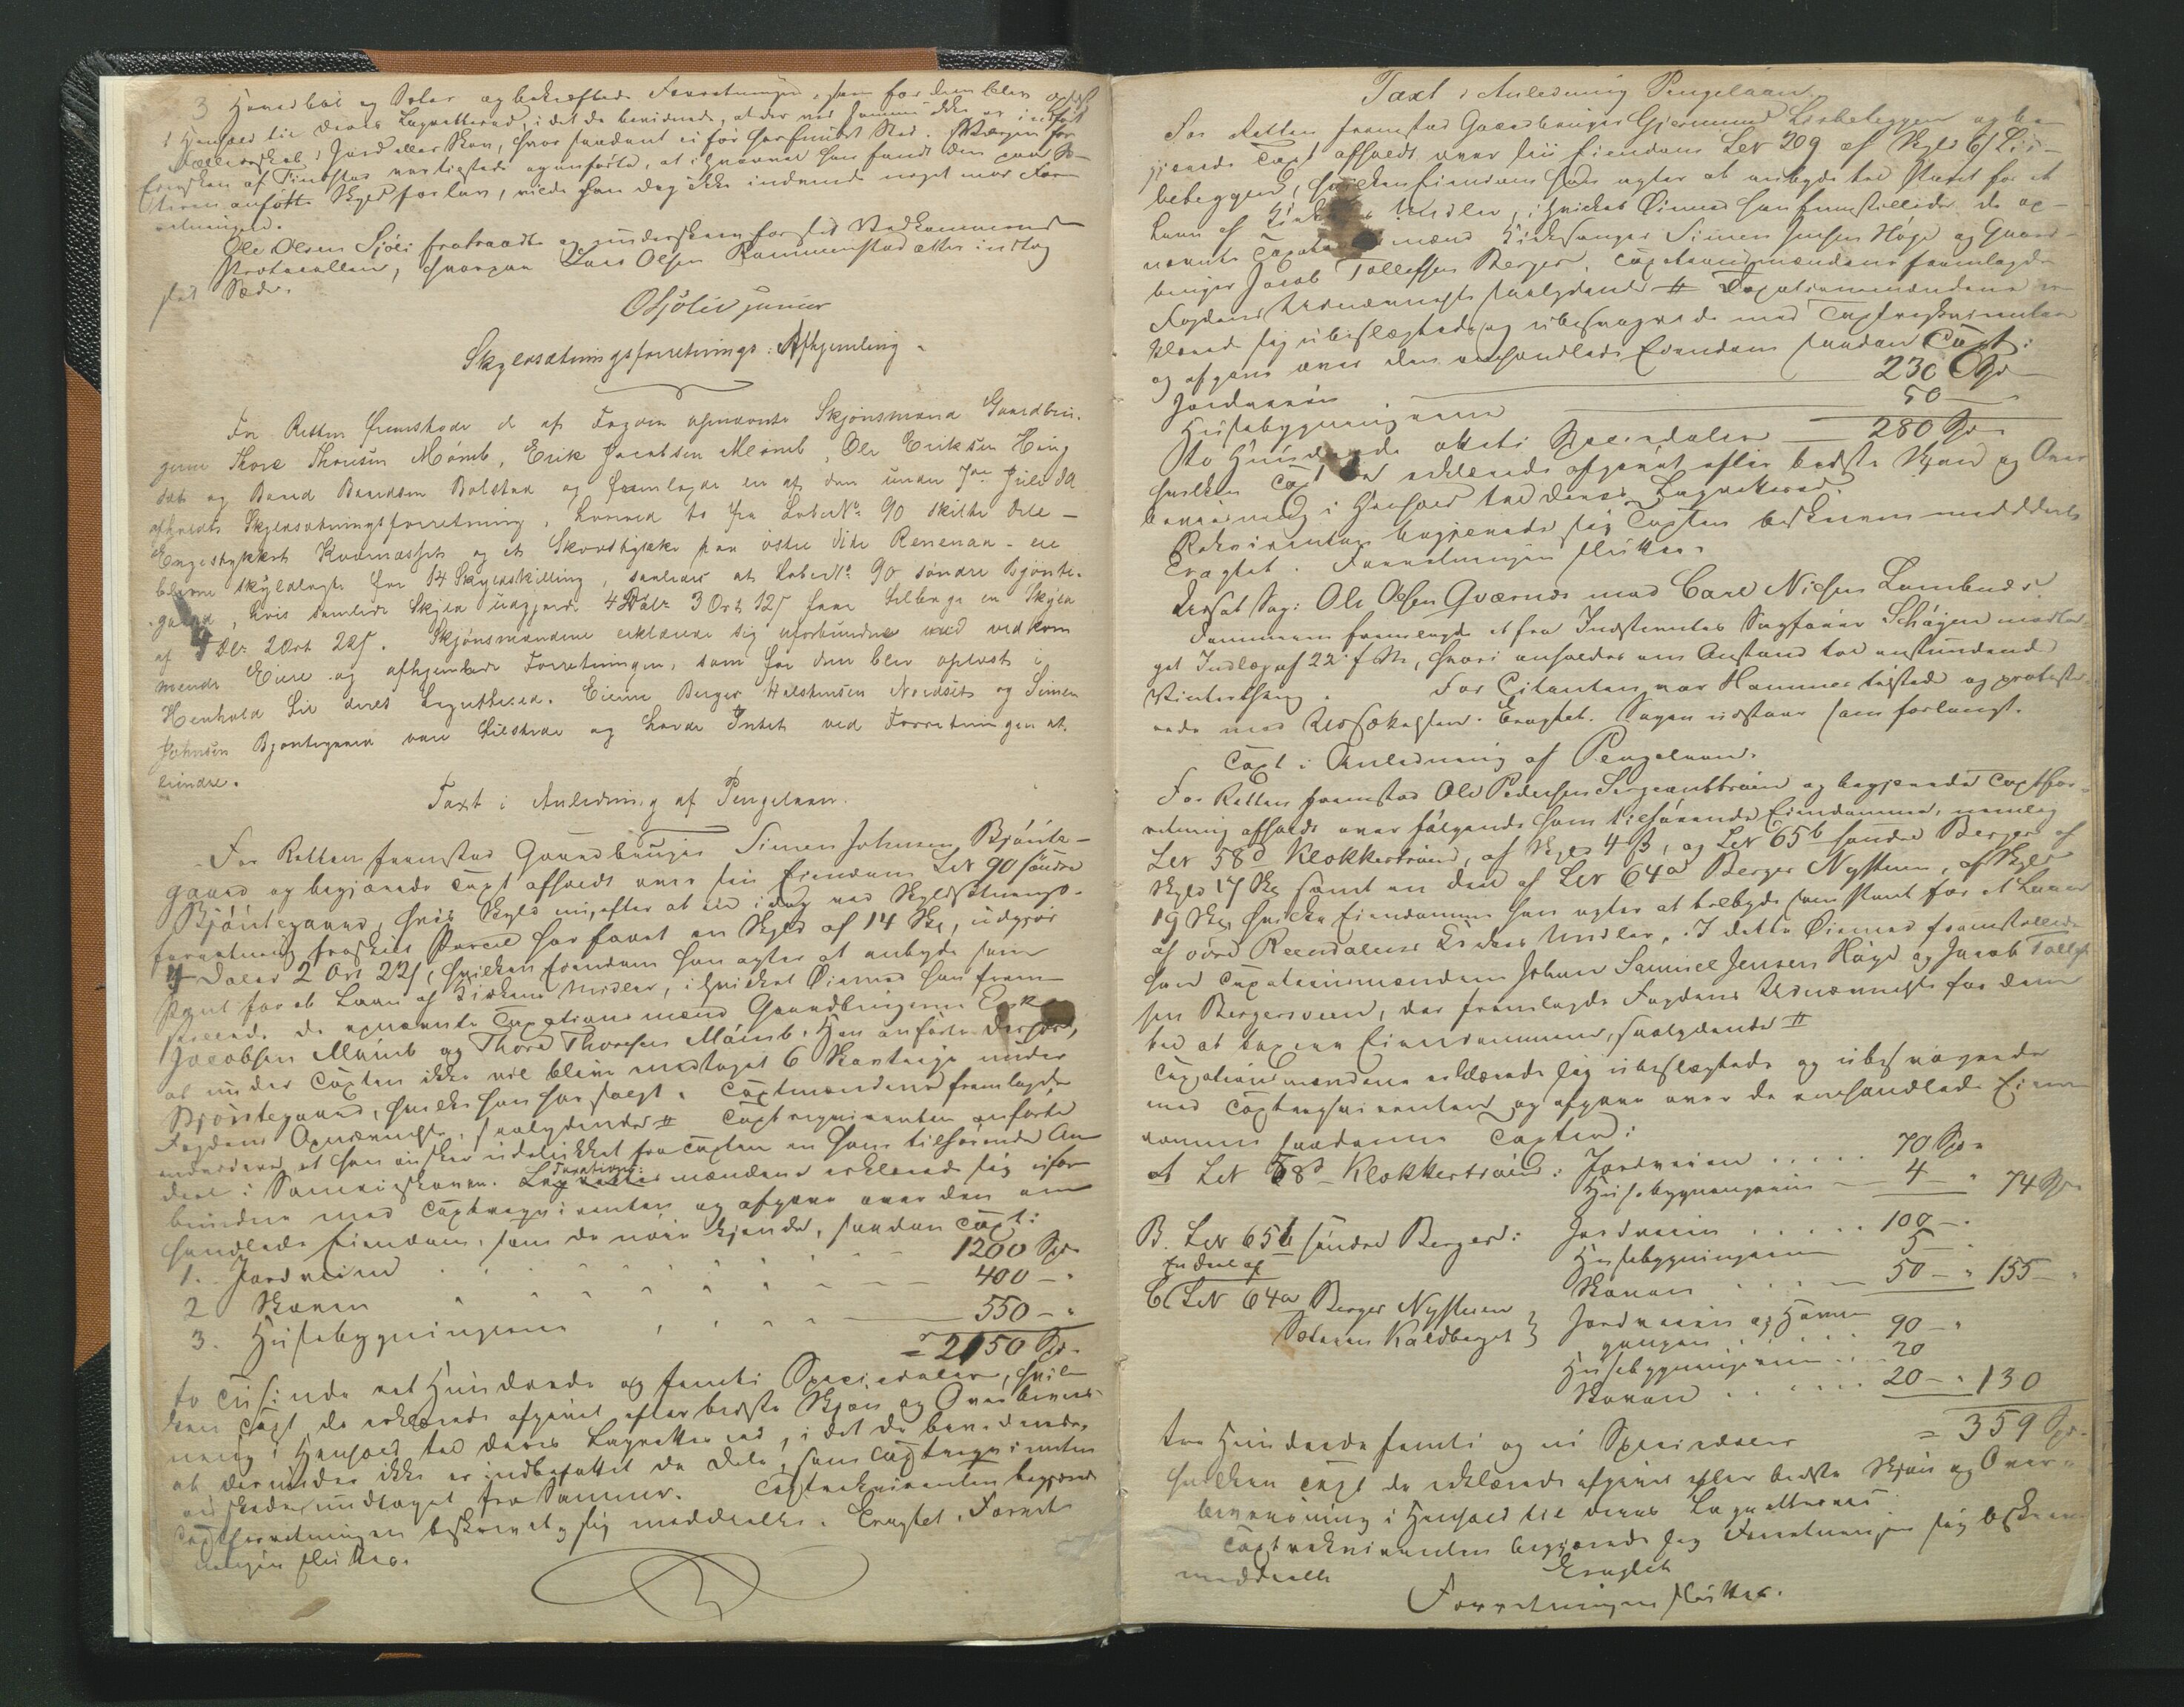 3 Hovedbøl og Soler og bekræftede Forretningen, som for dem blev oplæst
i Henhold til deres Lagretteseed, i det de bevidnede, at der ved samme ikke er indført
Fællesskab i Jord eller Skov, hvor saadant ei før har fundet Sted.
af Finstad var tilstede og anførte, at
anførte Skyld for lav, vilde han dog ikke indvende noget mod Forr
retningen.
Ole Olsen Sjöli fratraadte og underskrev for sit Vedkommende
Protocollen, hvorpaa Lars Olsen Rammenstad atter indtog
sit Sæde.
OSjölie junior
Skyldsætningsforretnings Afhjemling.
For Retten fremstode de af Fogden opnævnte Skjönsmænd Gaardbru-
gerne Thore Thoresen Mömb, Erik Jacobsen Mömb, Ole Eriksen Haug
set og Baard Baardsen Bolstad og fremlagde en af dem under 7de Juli d A
afholdt Skyldsætningsforretning, hvorved to fra LøbeNo 90 skilte Dele –
Engestykket Kværnæsset og et Skovstykke paa östre Side Renenaa – ere
blevne skyldlagte for 14 Skyldskilling, saaledes at LøbeNo 90 söndre Bjönte-
gaard, hvis samlede Skyld udgjorde 4 Dlr 3 Ort 12 ß faar tilbage en Skyld
af 4 Dlr 2 Ort 22 ß. Skjönsmændene erklærede sig uforbundne med vedkom
mende Eiere og afhjemlede Forretningen, som for dem blev oplæst i
Henhold til deres Lagretteseed. Eierne Berger Halstensen Nordset og Simen
Johnsen Bjöntegaard vare tilstede og havde Intet ved Forretningen at
erindre.
Taxt i Anledning af Pengelaan.
For Retten fremstod Gaardbruger Simen Johnsen Bjönte-
gaard og begjærede Taxt afholdt over sin Eiendom LN 90 söndre
Bjöntegaard, hvis Skyld nu, efter at en i Dag ved Skyldsætnings-
forretning fraskilt Parcel har faaet en Skyld af 14 Sk, udgjör
4 Daler 2 Ort 22 ß, hvilken Eiendom han agter at anbyde som
Pant for et Laan af Kirkens Midler, i hvilket Øiemed han frem-
stillede de opnævnte Taxationsmænd Gaardbrugerne Erik
Jacobsen Mömb og Thore Thoresen Mömb. Han anførte derhos,
at under Taxten ikke vil blive medtaget 6 Skovteige under
Bjöntegaard, hvilke han har solgt. Taxtmændene fremlagde
Fogdens Opnævnelse, saalydende # Taxtrequirenten anførte
endvidere at han ønsker udelukket fra Taxten en ham tilhørende An
deel i Sameieskoven. Taxations: mændene erklærede sig ufor
bundne med Taxtrequirenten og afgave over den om
handlede Eiendom, som de nöie kjende, saadan Taxt:
1. Jordveien . . . . . . . 1200 Spd
2 Skoven . . . . . . . 400 – "
3. Husebygningerne . . . . 550 – "
= 2150 Spd.
to Tusinde eet Hundrede og femti Speciedaler, hvil-
ken Taxt de erklærede afgivet efter bedste Skjøn og Overbeviis-
ning i Henhold til deres Lagretteseed, i det de bevidnede,
at derunder ikke er indbefattet de Dele, som Taxtrequirenten
ønskede undtaget fra Samme. Taxtrekvirenten begjærede
Taxtforretningen beskrevet sig meddeelt. Eragtet. Forret
ningen sluttes.
Taxt i Anledning Pengelaan.
For Retten fremstod Gaardbruger Gjermund Lisbeteggen og be
gjærede Taxt afholdt over sin Eiendom LN 209 af Skyld 6 ß Lis-
beteggen, hvilken Eiendom han agter at anbyde til Pant for et
Laan af Kirkens Midler, i hvilket Øiemed han fremstillede de op-
nævnte Taxationsmænd Kirkesanger Simen Jensen Høye og Gaard-
bruger Jacob Tollefsen Berger. Taxationsmændene fremlagde
Fogdens Udnævnelse saalydende # Taxationsmændene er
klærede sig ubeslægtede og ubesvogrede med Taxtrekvirenten
og afgave over den omhandlede Eiendom saadan Taxt:
Jordveien 230 Spd
Husebygningerne 50 –
280 Spd
To Hundrede otteti Speciedaler
hvilken Taxt de erklærede afgivet efter bedste Skjøn og Over
beviisning i Henhold til deres Lagretteseed.
Rekvirenten begjærede sig Taxten beskreven meddeelt
Eragtet. Forretningen sluttes.
Udsat Sag: Ole Olsen Qværnes mod Carl Nielsen Lombnæs.
Dommeren fremlagde et fra Indstevntes Sagfører Schøyen modta-
get Indlæg af 22 f. M., hvori anholdes om Anstand til anstundende
Vinterthing. For Citanten var Hammer tilstede og proteste-
rede mod Udsættelsen. Eragtet. Sagen udstaar som forlangt.
Taxt i Anledning af Pengelaan.
For Retten fremstod Ole Pedersen Sergeantbraaen og begjærede Taxtfor-
retning afholdt over følgende ham tilhørende Eiendomme, nemlig
LN 58d Klokkerbraaen, af Skyld 4 ß, og LN 65b söndre Berger af
Skyld 17 Sk samt en Deel af LN 64a Berger Nysteen, af Skyld
19 Sk, hvilke Eiendomme han agter at tilbyde som Pant for et Laan
af øvre Rendalens Kirkes Midler. I dette Øiemed fremstillede
han Taxationsmændene Johan Samuel Jensen Høye og Jacob Tollef
sen Bergersveen, der fremlagde Fogdens Udnævnelse for dem
til at taxere Eiendommene, saalydende #
Taxationsmændene erklærede sig ubeslægtede og ubesvogrede
med Taxtrequirenten og afgave over de omhandlede Eien
domme saadanne Taxter:
A LN 58d Klokkerbraaen: Jordveien . . . . . 70 Spd
Husebygningerne – 4 – " 74 Spd
B. LN 65b söndre Berger: Jordveien . . . . . 100 – "
Husebygningerne 5 – "
Skoven . . . . – 50 – " 155 – "
En Deel af
C LN 64a Berger Nysteen
Sæteren Kaldberget } Jordveien og Havne
gangen . . . . . 90 – "
Husebygningerne . . . 20
Skoven . . . . . . . 20 – " 130
= 359 Spd.
tre Hundrede femti og ni Speciedaler
hvilken Taxt de erklærede afgivet efter bedste Skjøn og Over-
beviisning i Henhold til deres Lagretteseed
Taxtrekvirenten begjærede sig Forretningen sig beskreven
meddeelt Eragtet
Forretningen sluttes.